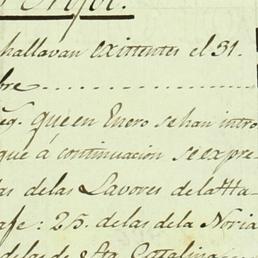 hallavan existentes el 31.
bre
q. que en Enero se han intro
que á continuacion se expre
las de las Lavores de la Ha
afe: 25. de las de la Noria
de las de Sta Catalina